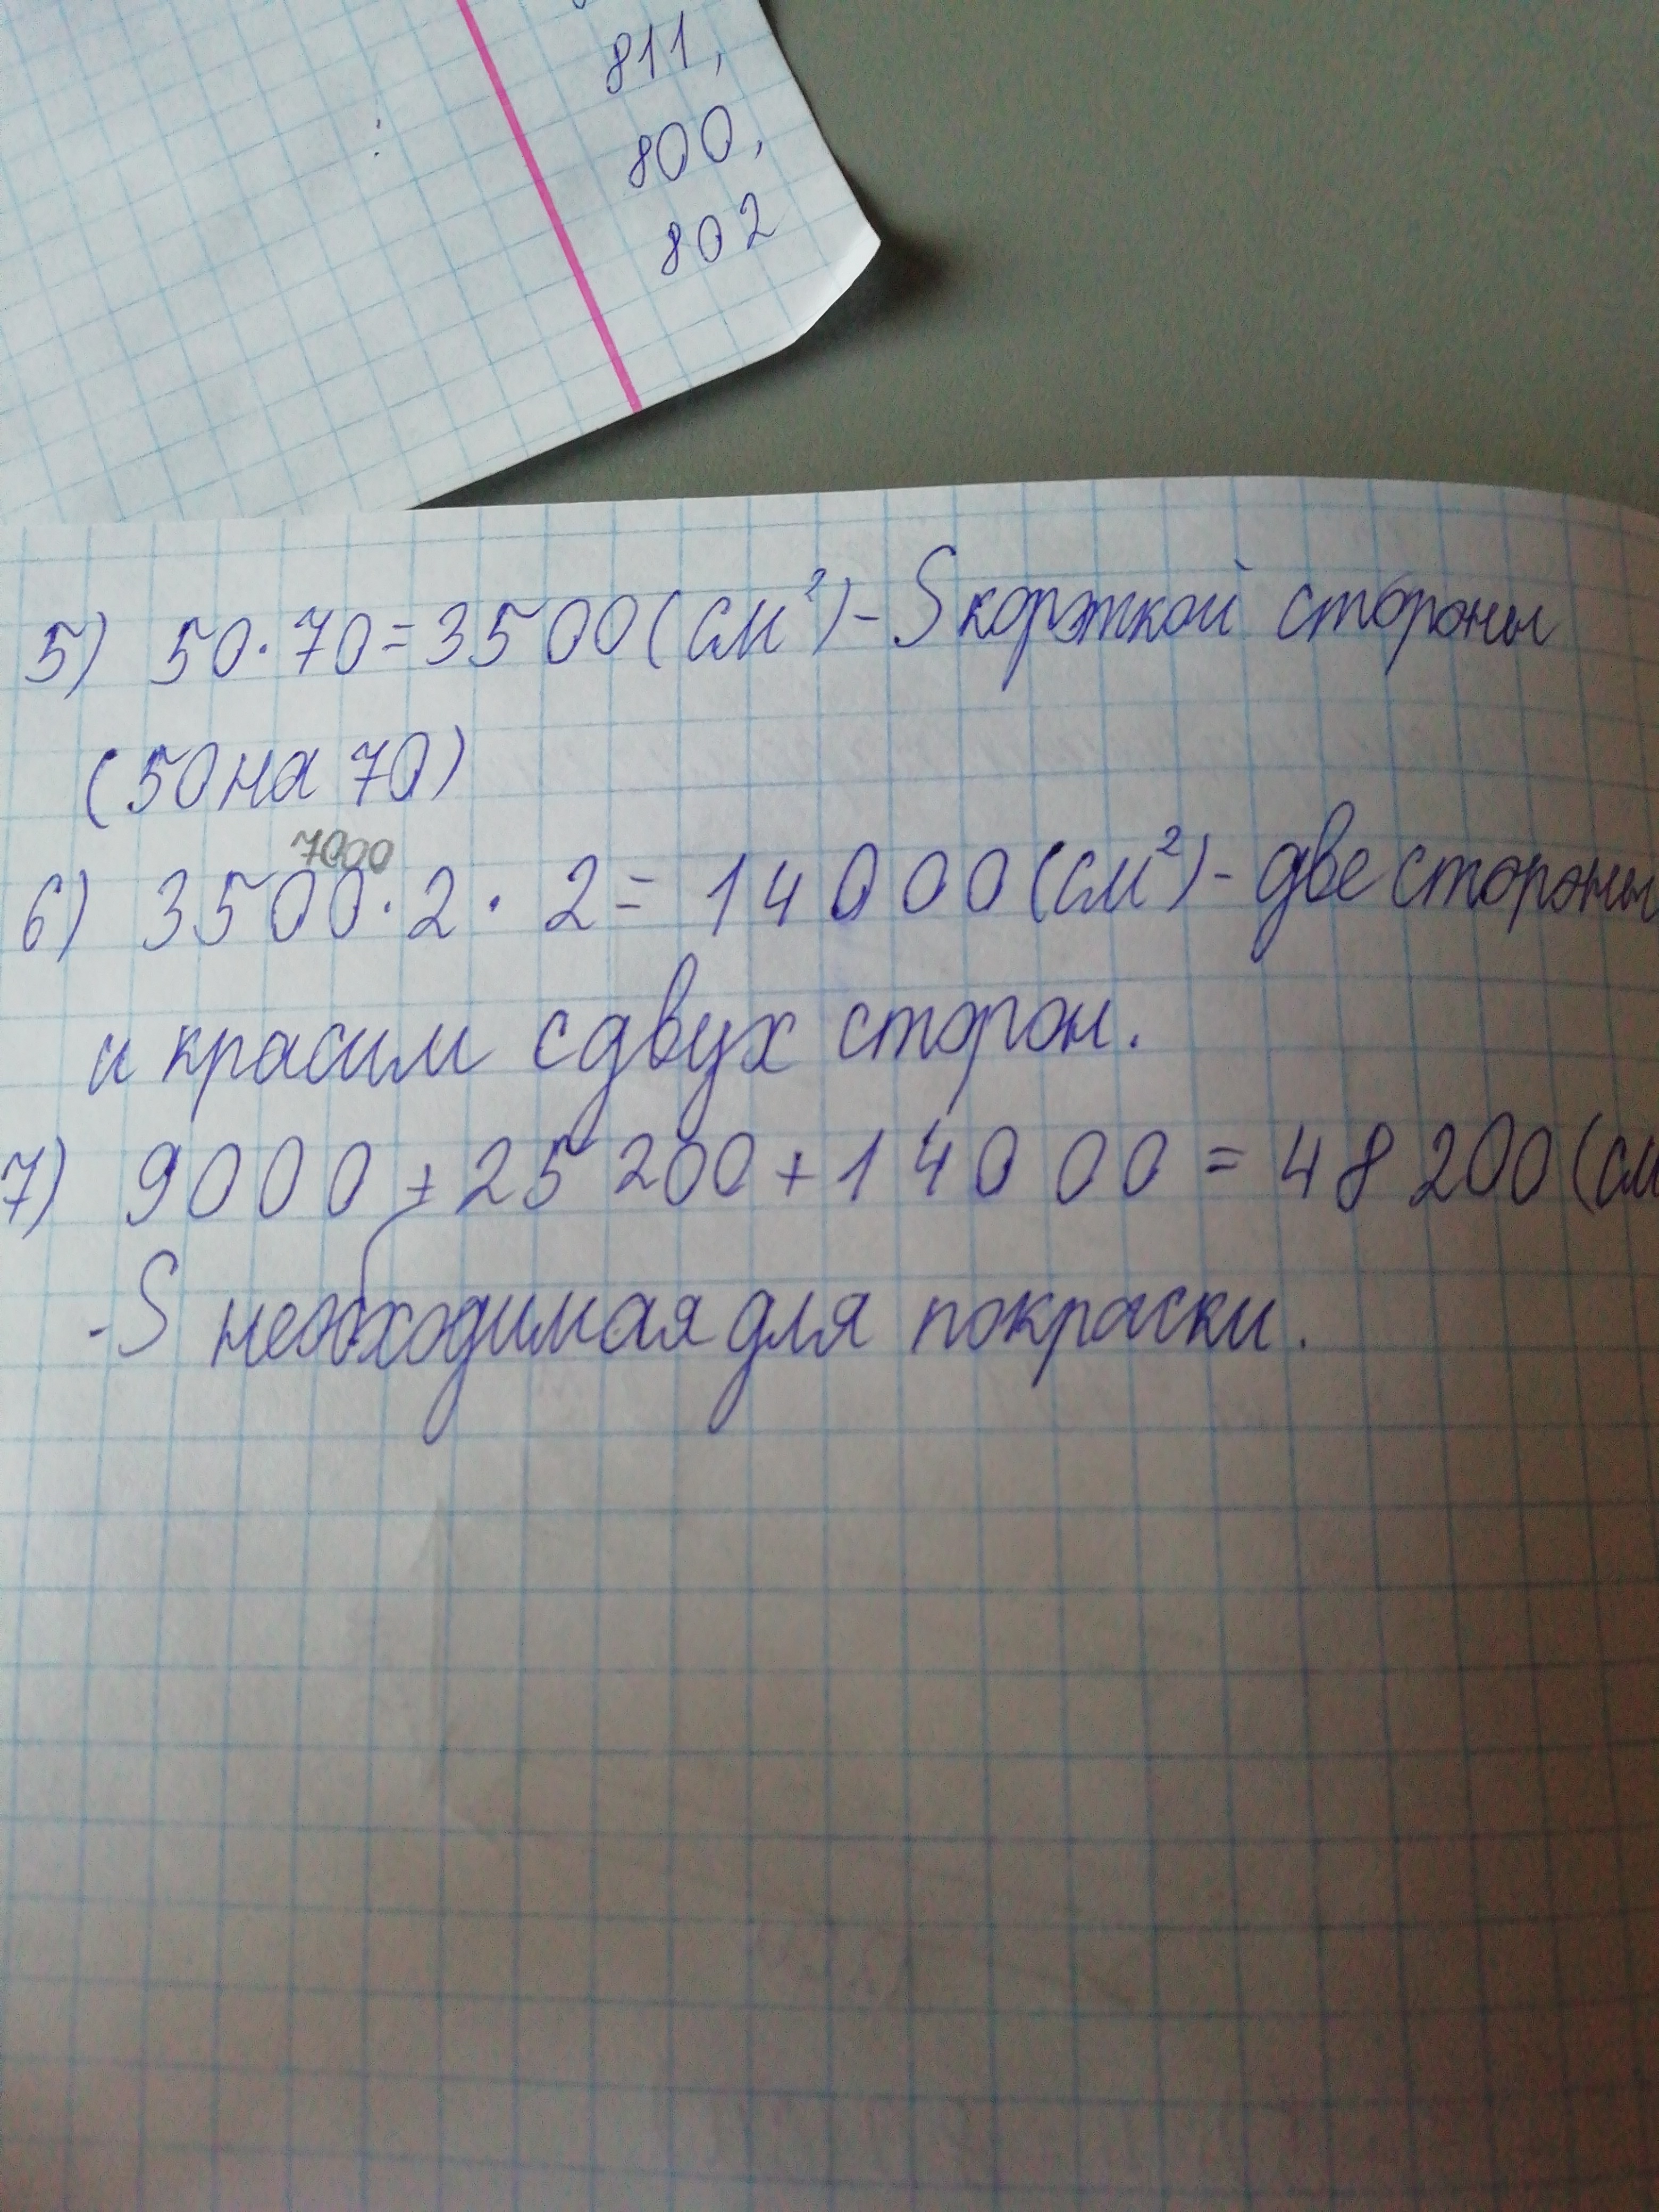 811,
800,
802
5) 50·70=3500(см²)-S короткой стороны
(50на 70)
7000
6) 3500·2·2=14000(см²)-две стороны
и красим с двух сторон.
7) 9000+25200+14000=48200(см
-S необходимая для покраски.